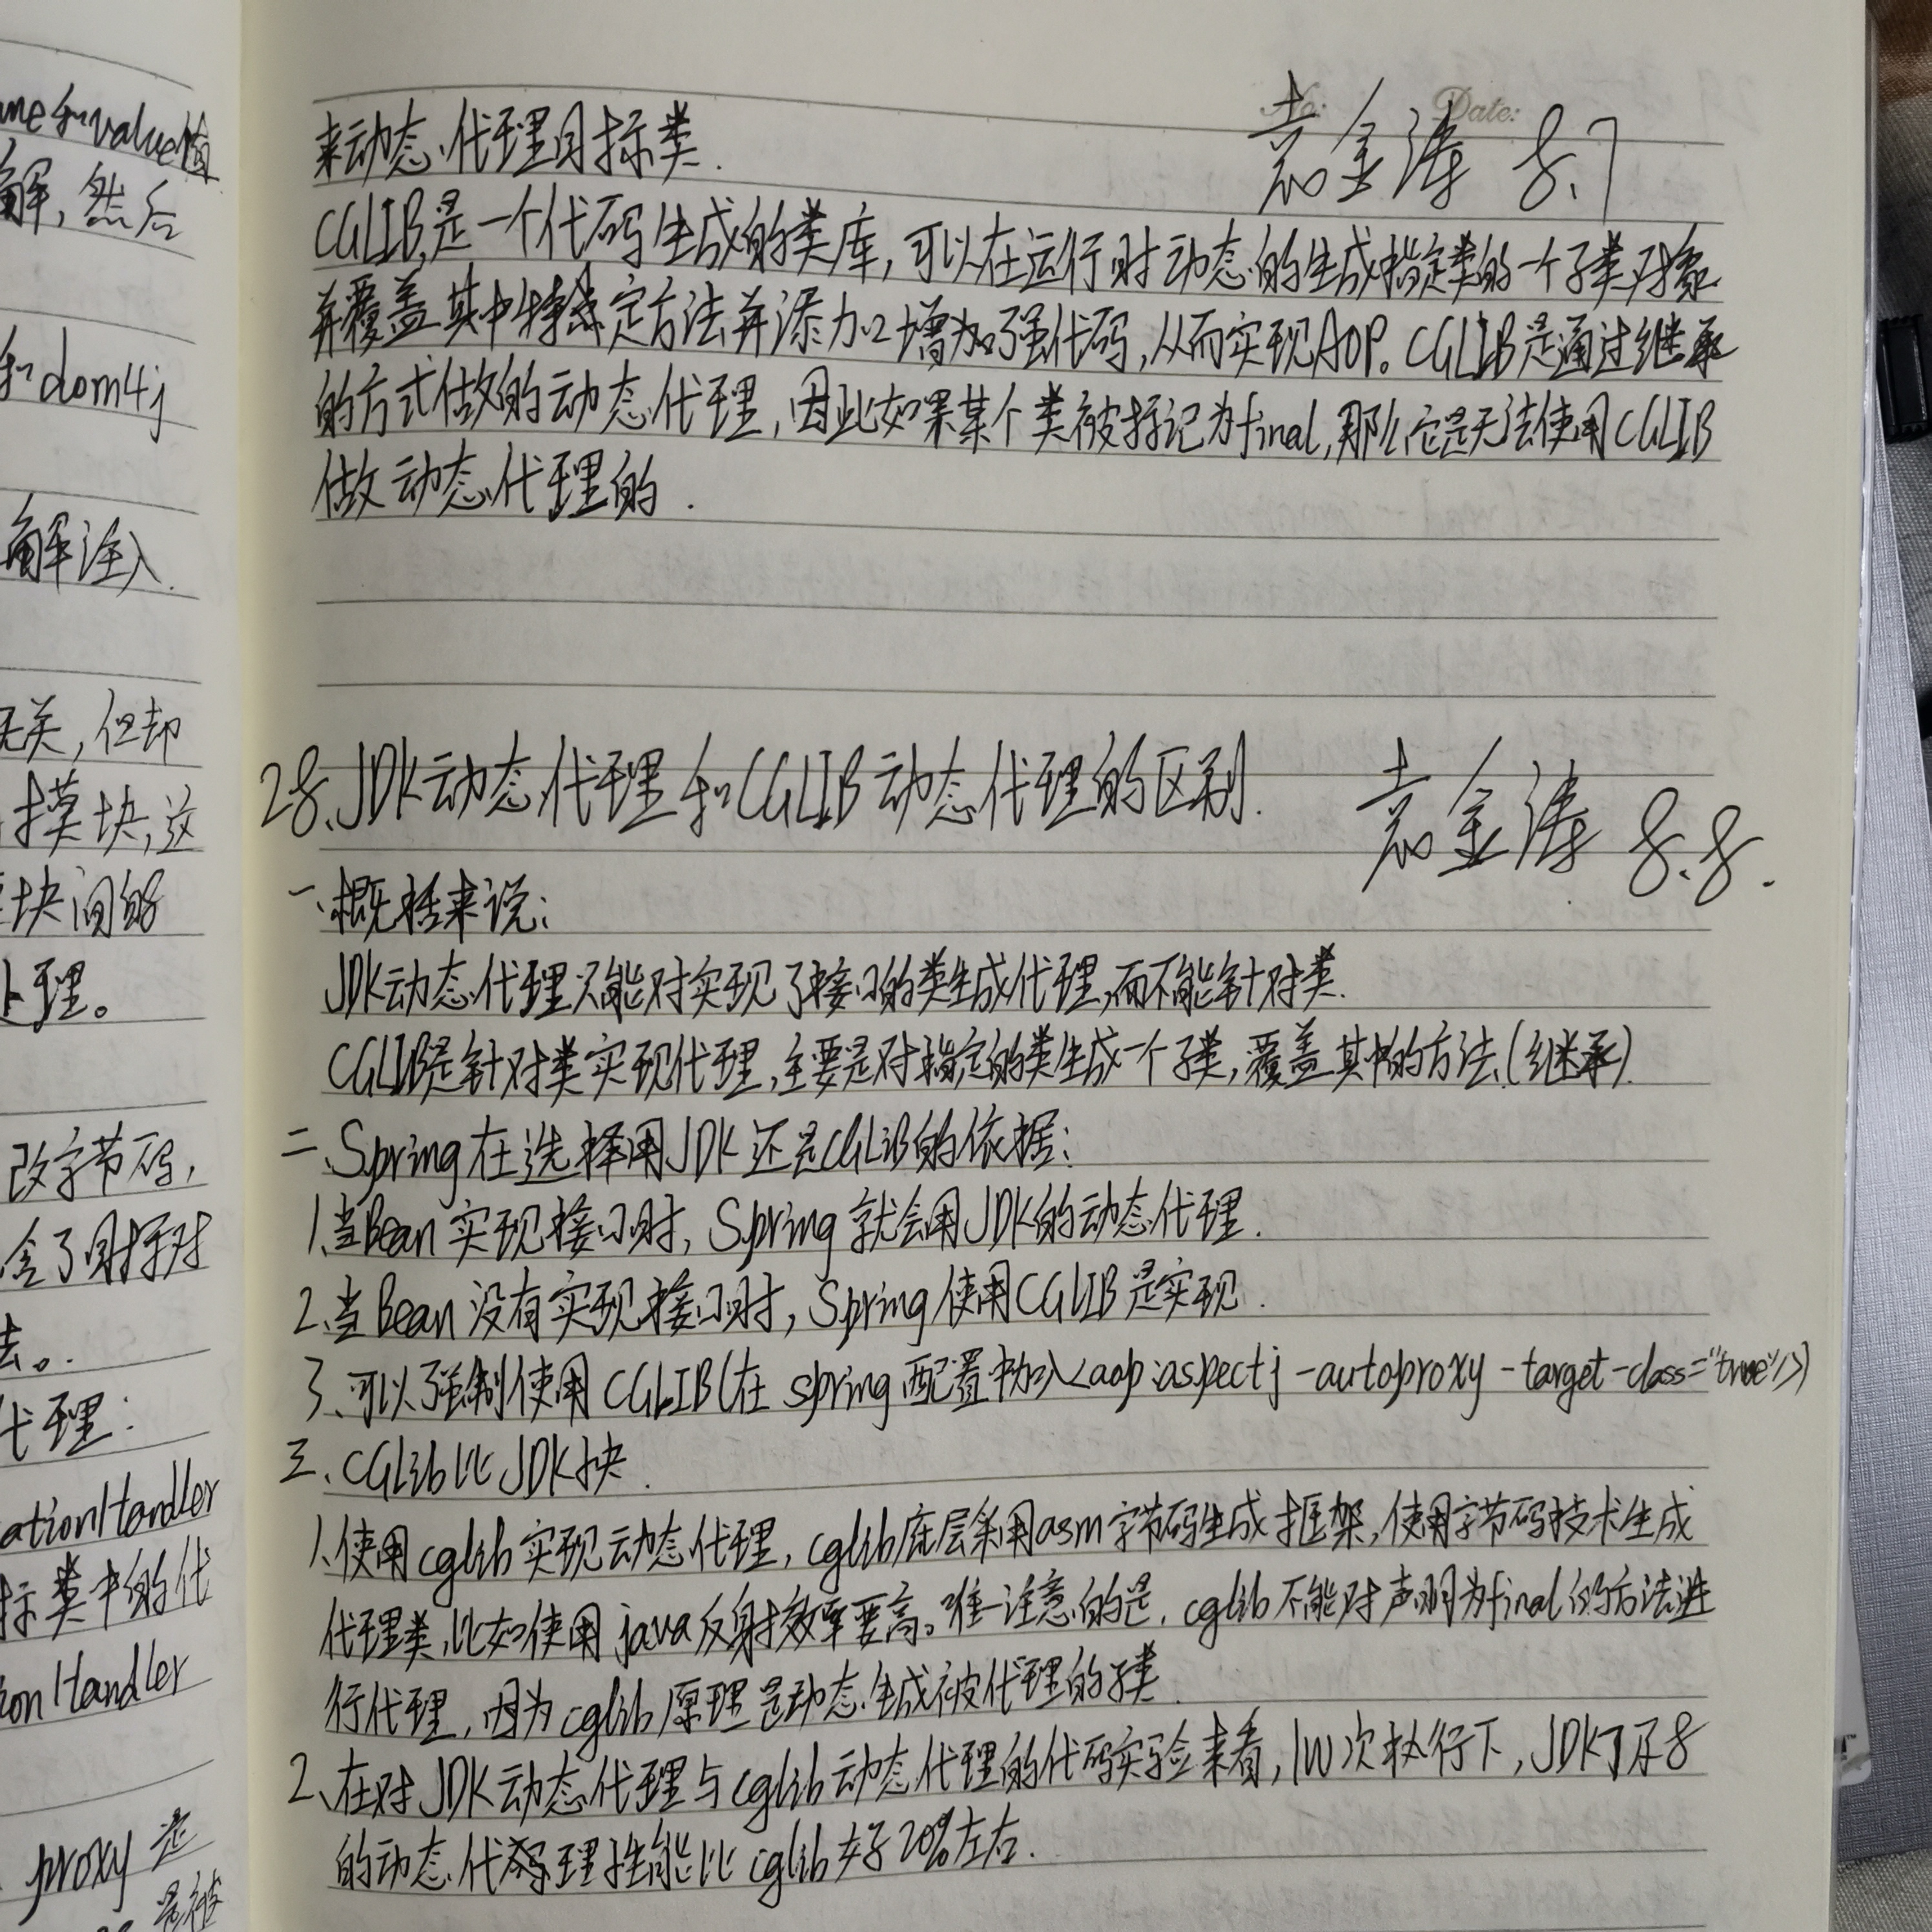 ame和value值
解,然后
和dom4j
解注入.
无关,但却
模块,这
块间的
处理。
改字节码,
含了目标对
法。.
代理:
ationHandler
标类中的代
ionHandler
proxy是
是被
No: Date:
来动态代理目标类.
袁金涛 8.7
CGLIB是一个代码生成的类库,可以在运行时动态的生成指定类的一个子类对象
并覆盖其中特定方法并添加增加强代码,从而实现AOP。CGLIB是通过继承
的方式做的动态代理,因此如果某个类被标记为final,那么它是无法使用CGLIB
做动态代理的.
28、JDK动态代理和CGLIB动态代理的区别.
袁金涛 8.8.
一、概括来说:
JDK动态代理只能对实现了接口的类生成代理,而不能针对类.
CGLIB是针对类实现代理,主要是对指定的类生成一个子类,覆盖其中的方法(继承).
二、Spring在选择用JDK还是CGLIB的依据:
1、当Bean实现接口时,Spring就会用JDK的动态代理.
2、当Bean没有实现接口时,Spring使用CGLIB是实现.
3、可以强制使用CGLIB(在spring配置中加入<aop:aspectj-autoproxy-target-class="true"/>)
三、CGlib比JDK快.
1、使用cglib实现动态代理,cglib底层采用asm字节码生成框架,使用字节码技术生成
代理类,比如使用java反射效率要高。唯一注意的是,cglib不能对声明为final的方法进
行代理,因为cglib原理是动态生成被代理的子类.
2、在对JDK动态代理与cglib动态代理的代码实验来看,1W次执行下,JDK7及8
的动态代理性能比cglib好20%左右.